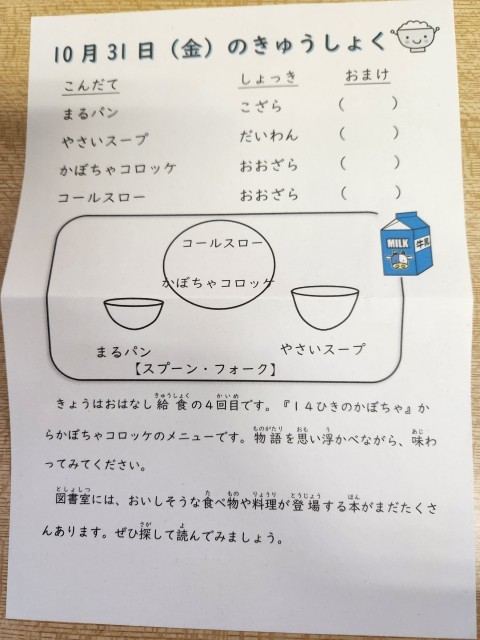 10月31日（金）のきゅうしょく
こんだて しょっき おまけ
まるパン こざら （ ）
やさいスープ だいわん （ ）
かぼちゃコロッケ おおざら （ ）
コールスロー おおざら （ ）
コールスロー
MILK 牛乳
かぼちゃコロッケ
まるパン やさいスープ
【スプーン・フォーク】
きょうはおはなし給食の４回目です。『１４ひきのかぼちゃ』か
らかぼちゃコロッケのメニューです。物語を思い浮かべながら、味わ
ってみてください。
図書室には、おいしそうな食べ物や料理が登場する本がまだたくさ
んあります。ぜひ探して読んでみましょう。